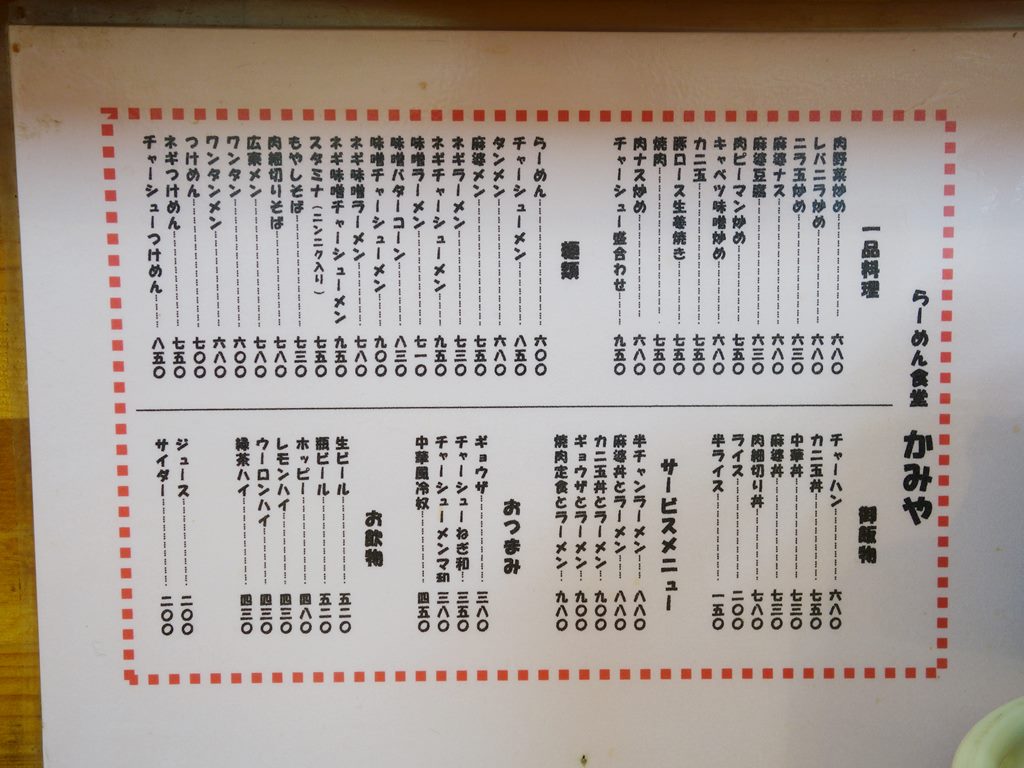 らーめん食堂 かみや
一品料理
肉野菜炒め 六八〇
レバニラ炒め 六八〇
ニラ玉炒め 六三〇
麻婆ナス 六八〇
麻婆豆腐 六三〇
肉ピーマン炒め 七五〇
キャベツ味噌炒め 六八〇
カニ玉 七五〇
豚ロース生姜焼き 七五〇
焼肉 七五〇
肉ナス炒め 六八〇
チャーシュー盛合わせ 九五〇
麺類
らーめん 六〇〇
チャーシューメン 八五〇
タンメン 六八〇
麻婆メン 七五〇
ネギラーメン 七三〇
ネギチャーシューメン 九五〇
味噌ラーメン 七一〇
味噌バターコーン 八三〇
味噌チャーシューメン 九〇〇
ネギ味噌ラーメン 七八〇
ネギ味噌チャーシューメン 九五〇
スタミナ(ニンニク入り) 七五〇
もやしそば 七三〇
肉細切りそば 七八〇
広東メン 七八〇
ワンタン 六〇〇
ワンタンメン 六八〇
つけめん 七〇〇
ネギつけめん 七五〇
チャーシューつけめん 八五〇
御飯物
チャーハン 六八〇
カニ玉丼 七五〇
中華丼 七三〇
麻婆丼 七三〇
肉細切り丼 七八〇
ライス 二〇〇
半ライス 一五〇
サービスメニュー
半チャンラーメン 八八〇
麻婆丼とラーメン 八八〇
カニ玉丼とラーメン 九〇〇
ギョウザとラーメン 九〇〇
焼肉定食とラーメン 九八〇
おつまみ
ギョウザ 三八〇
チャーシューねぎ和 三五〇
チャーシューメンマ和 三八〇
中華風冷奴 四五〇
お飲物
生ビール 五二〇
瓶ビール 五二〇
ホッピー 四八〇
レモンハイ 四三〇
ウーロンハイ 四三〇
緑茶ハイ 四三〇
ジュース 二〇〇
サイダー 二〇〇